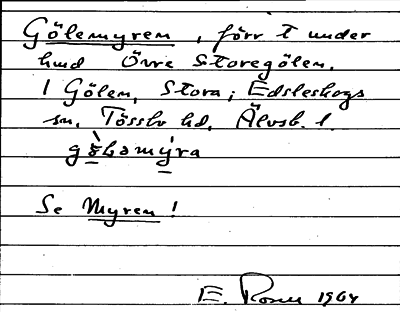 Gölemyren, förr t under
lund Övre Storegölen.
I Gölen, Stora; Edsleskogs
sn, Tössbo hd, Älvsb. l.
gö̀lɘmýra
Se Myren!
E. 1964